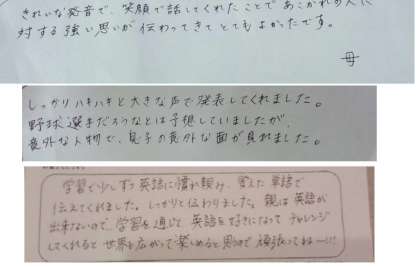 きれいな発音で、笑顔で話してくれたことであこがれの人に
対する強い思いが伝わってきてとてもよかったです。
母
しっかりハキハキと大きな声で発表してくれました。
野球選手だろうなとは予想していましたが、
意外な人物で、息子の意外な面が見れました。
学習で少しずつ英語に慣れ親しみ、覚えた単語で
伝えてくれました。しっかりと伝わりました。親は英語が
出来ないので、学習を通じて英語を好きになって チャレンジ
してくれると世界も広がって楽しめると思うので頑張ってね〜!!!